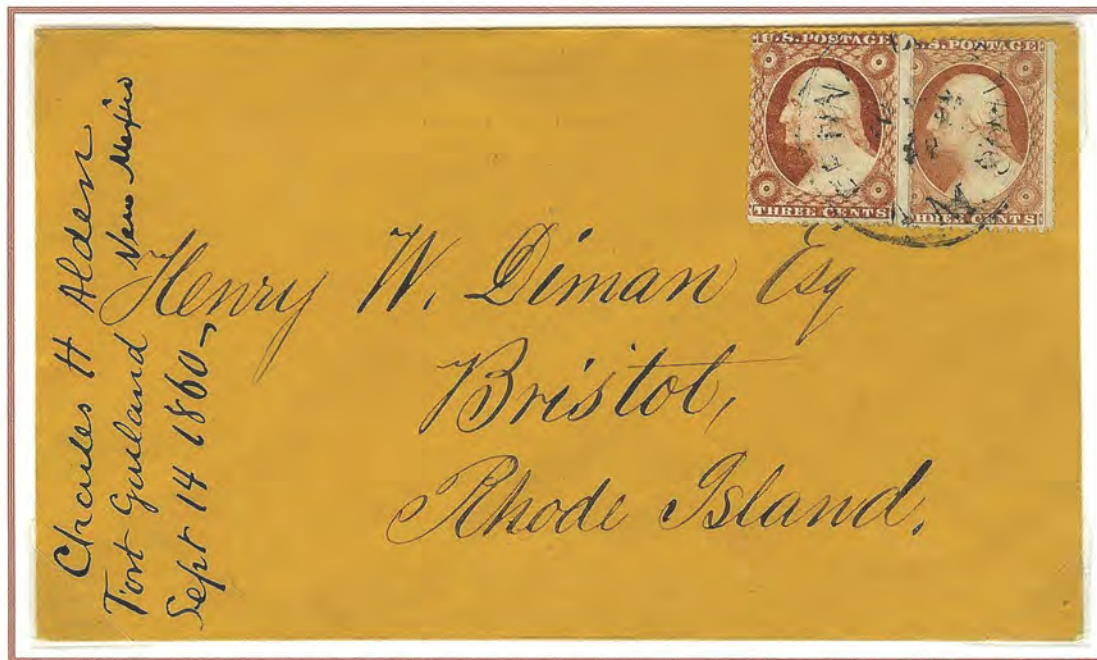 U.S. POSTAGE
U.S. POSTAGE
THREE CENTS
THREE CENTS
Charles H Alden
Fort Garland New Mexico
Sept 14 1860
Henry W. Diman Esq
Bristol,
Rhode Island.